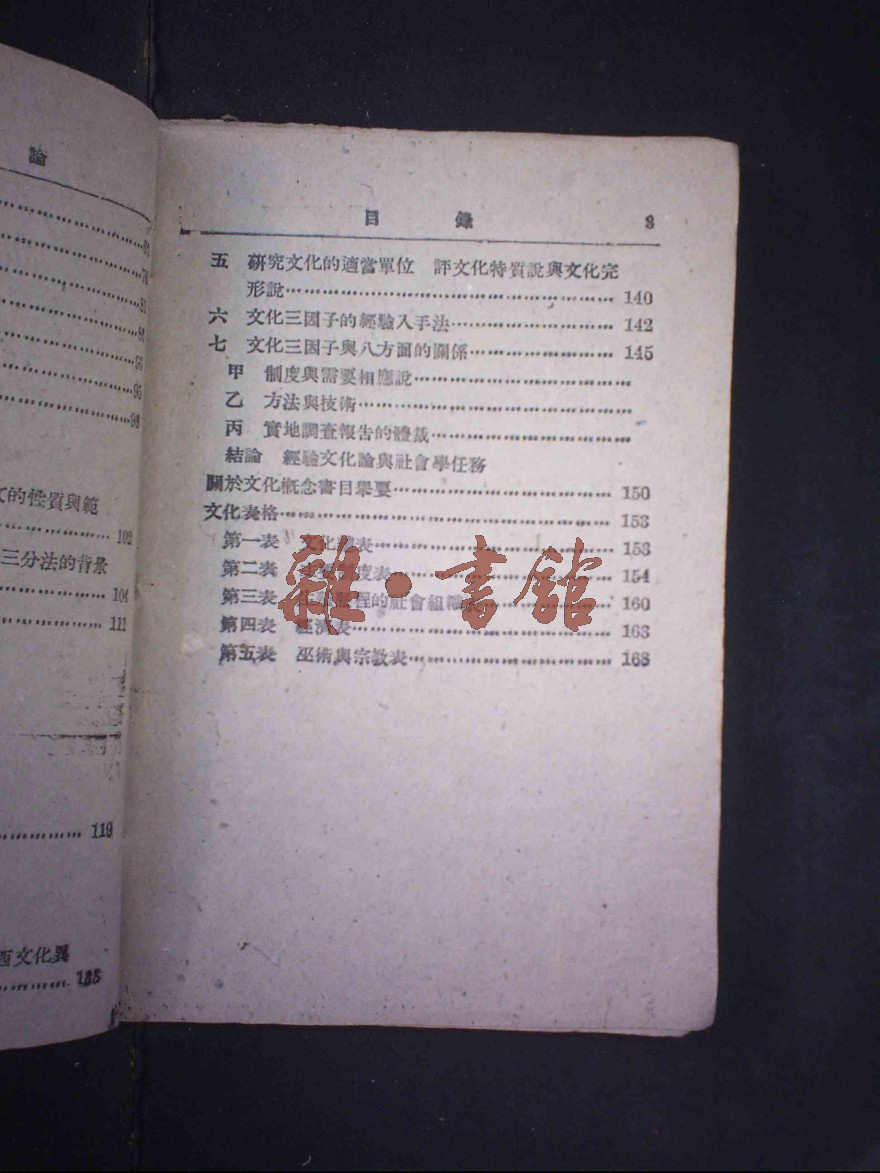 論
78
81
95
98
文的性質與範
102
三分法的背景
104
111
119
西文化異
135
目錄 3
五 研究文化的適當單位 評文化特質說與文化完
形說 140
六 文化三因子的經驗入手法 142
七 文化三因子與八方面的關係 145
甲 制度與需要相應說
乙 方法與技術
丙 實地調查報告的體裁
結論 經驗文化論與社會學任務
關於文化概念書目舉要 150
文化表格 153
第一表 文化 表 153
第二表 制度表 154
第三表 程的社會組織 160
第四表 經濟表 163
第五表 巫術與宗教表 168
雜·書館